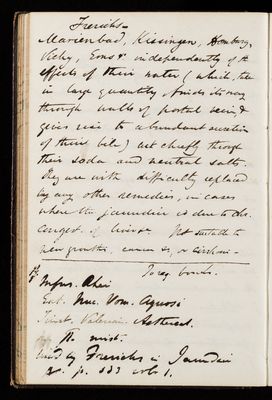 Frerichs—
Marienbad, Kissingen, Homburg,
Vichy, Ems & independently of the
effects of their water (which, taken
in large quantity finds its way
through walls of portal vein, &
gives rise to abundant secretion
of thin bile) act chiefly through
their soda and neutral salts.
They are with difficulty replaced
by any other remedies, in cases
where the jaundice is due to chr.
congest. of liver. Not suitable to
new growths, cancer &c, or cirrhosis—
To reg. bowels.
Infus. Rhei
Ext. Nuc. Vom. Aquosi
Tinct. Valerian. Aethereal.
ft. mist.
Used by Frerichs in Jaundice
p. 133 vol. 1.